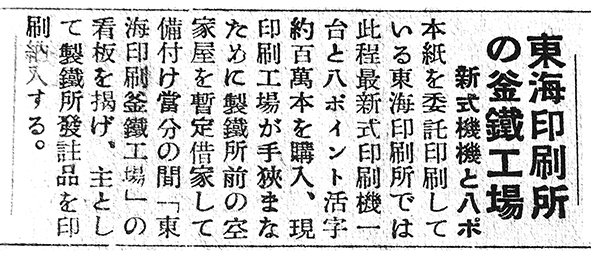 東海印刷所
の釜鐵工場
新式機機と八ポ
本紙を委託印刷して
いる東海印刷所では
此程最新式印刷機一
台と八ポイント活字
約百萬本を購入、現
印刷工場が手狹まな
ために製鐵所前の空
家屋を暫定借家して
備付け當分の間「東
海印刷釜鐵工場」の
看板を揭げ、主とし
て製鐵所發註品を印
刷納入する。